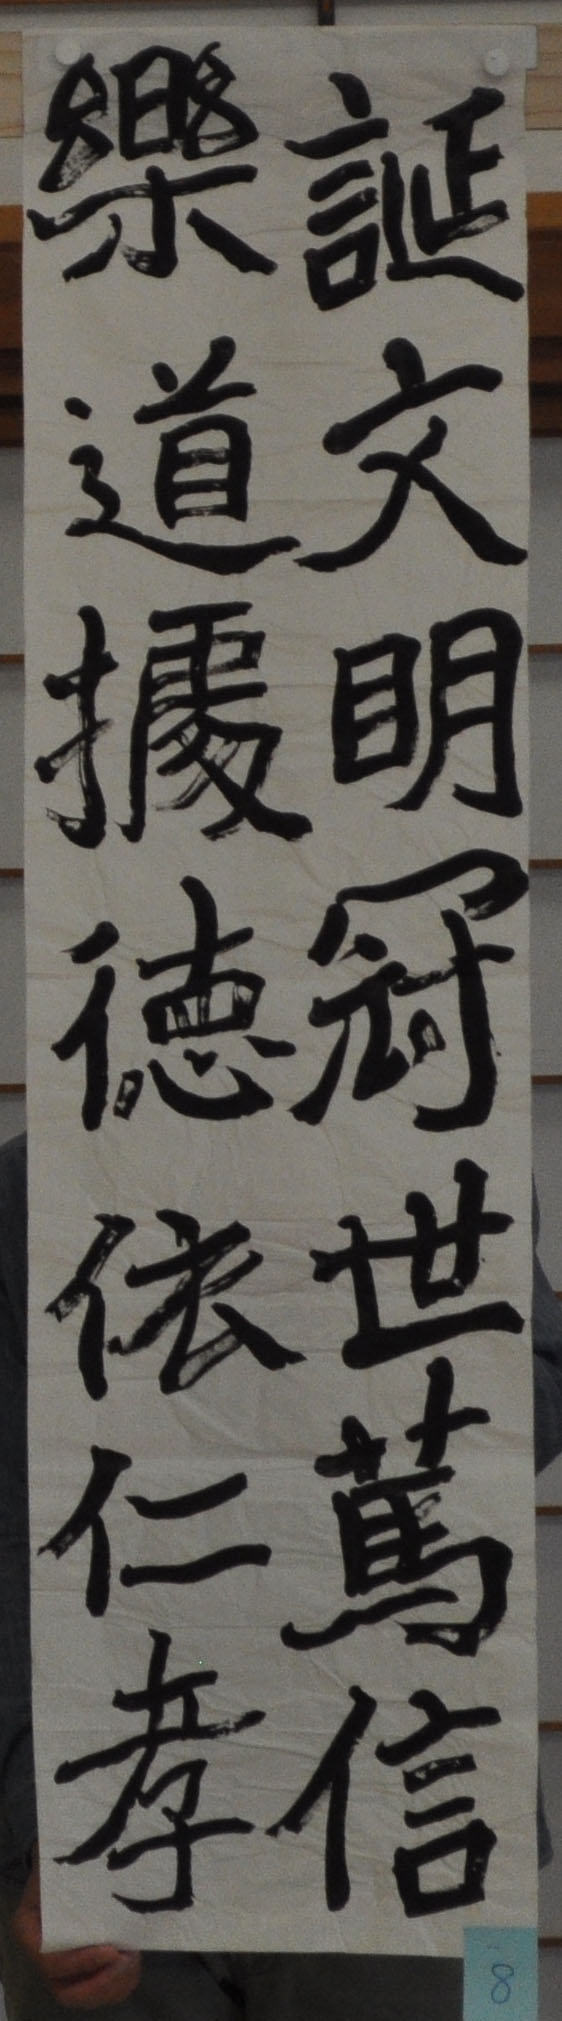 誕文明冠世篤信
樂道據徳依仁孝
8